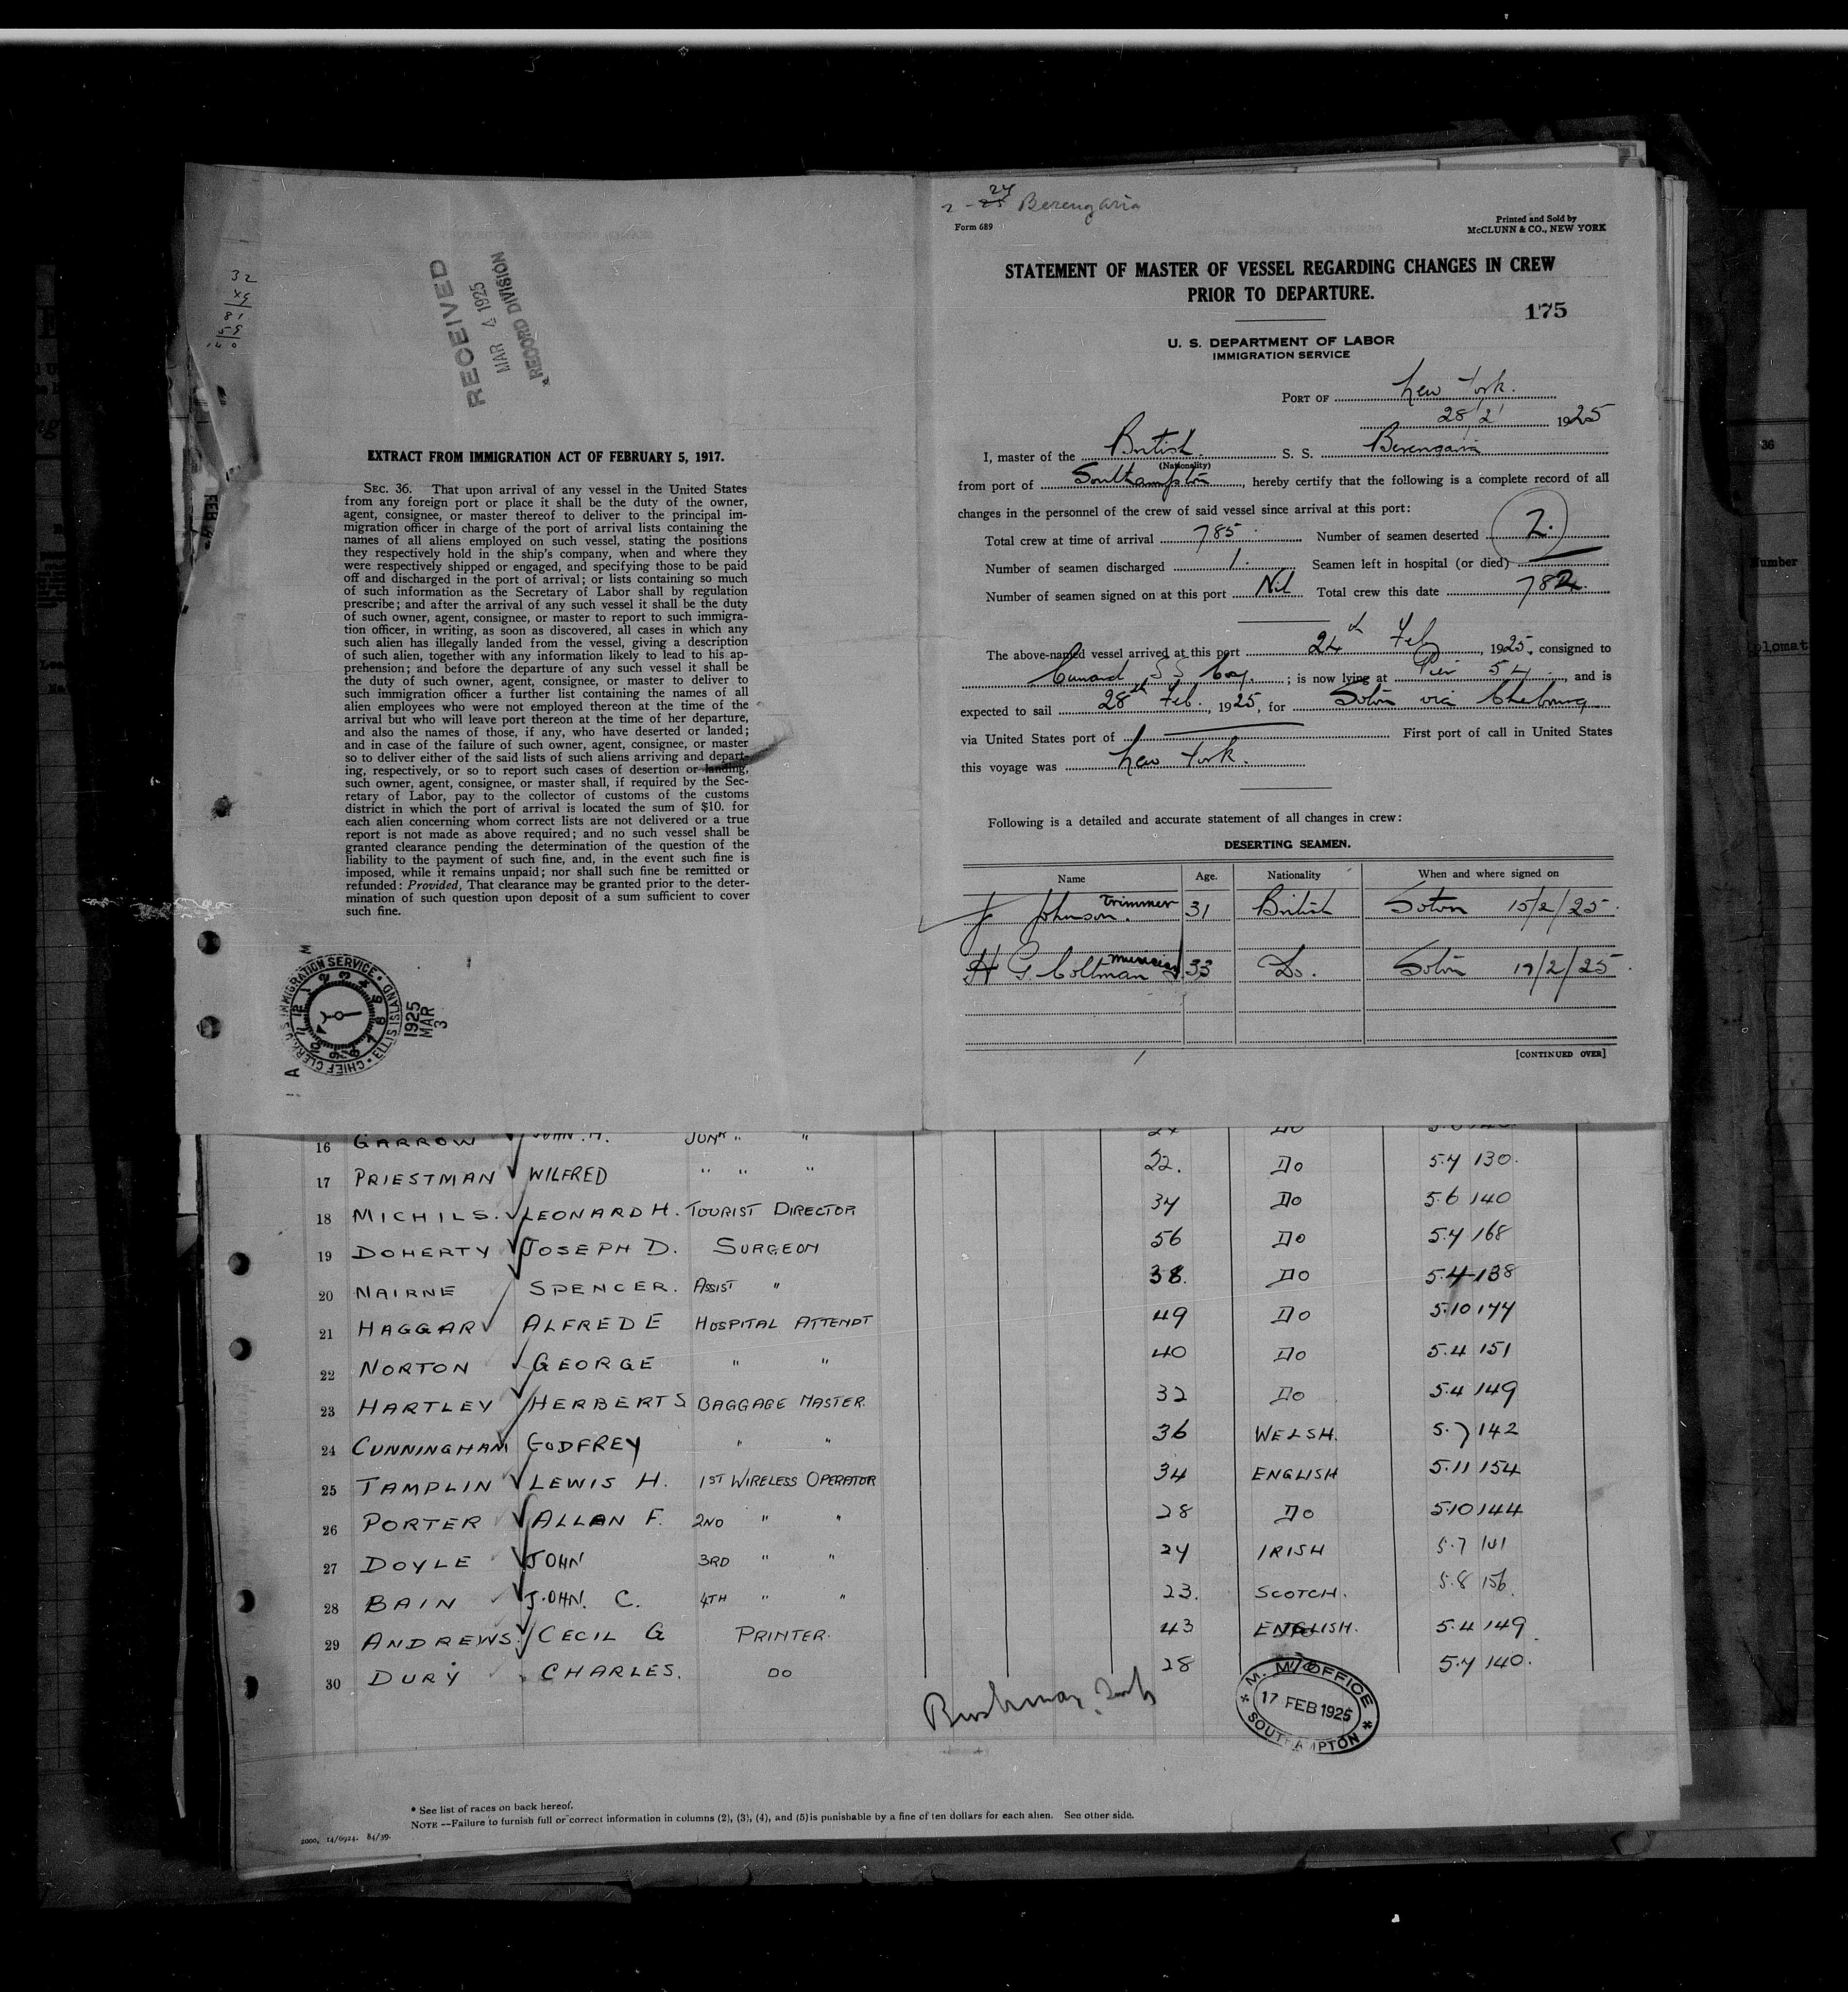 32
81
59
RECEIVED
MAR 4 1925
RECORD DIVISION
EXTRACT FROM IMMIGRATION ACT OF FEBRUARY 5, 1917.
SEC. 36. That upon arrival of any vessel in the United States
from any foreign port or place it shall be the duty of the owner,
agent, consignee, or master thereof to deliver to the principal im-
migration officer in charge of the port of arrival lists containing the
names of all aliens employed on such vessel, stating the positions
they respectively hold in the ship's company, when and where they
were respectively shipped or engaged, and specifying those to be paid
off and discharged in the port of arrival; or lists containing so much
of such information as the Secretary of Labor shall by regulation
prescribe; and after the arrival of any such vessel it shall be the duty
of such owner, agent, consignee, or master to report to such immigra-
tion officer, in writing, as soon as discovered, all cases in which any
such alien has illegally landed from the vessel, giving a description
of such alien, together with any information likely to lead to his ap-
prehension; and before the departure of any such vessel it shall be
the duty of such owner, agent, consignee, or master to deliver to
such immigration officer a further list containing the names of all
alien employees who were not employed thereon at the time of the
arrival but who will leave port thereon at the time of her departure,
and also the names of those, if any, who have deserted or landed;
and in case of the failure of such owner, agent, consignee, or master
so to deliver either of the said lists of such aliens arriving and depart-
ing, respectively, or so to report such cases of desertion or landing,
such owner, agent, consignee, or master shall, if required by the Sec-
retary of Labor, pay to the collector of customs of the customs
district in which the port of arrival is located the sum of $10. for
each alien concerning whom correct lists are not delivered or a true
report is not made as above required; and no such vessel shall be
granted clearance pending the determination of the question of the
liability to the payment of such fine, and, in the event such fine is
imposed, while it remains unpaid; nor shall such fine be remitted or
refunded: Provided, That clearance may be granted prior to the deter-
mination of such question upon deposit of a sum sufficient to cover
such fine.
CHIEF CLERK, U.S. IMMIGRATION SERVICE • ELLIS ISLAND
1925 MAR 3
2 - 24 Berengaria
Form 689
Printed and Sold by
McCLUNN & CO., NEW YORK
STATEMENT OF MASTER OF VESSEL REGARDING CHANGES IN CREW
PRIOR TO DEPARTURE.
175
U. S. DEPARTMENT OF LABOR
IMMIGRATION SERVICE
PORT OF New York.
28/2/ 1925
I, master of the British. S. S. Berengaria
(Nationality)
from port of Southampton, hereby certify that the following is a complete record of all
changes in the personnel of the crew of said vessel since arrival at this port:
Total crew at time of arrival 785. Number of seamen deserted 2.
Number of seamen discharged 1. Seamen left in hospital (or died) —
Number of seamen signed on at this port Nil Total crew this date 782.
The above-named vessel arrived at this port 24th Feb, 1925, consigned to
Cunard S S Coy.; is now lying at Pier 54, and is
expected to sail 28th Feb., 1925, for Soton via Cherbourg
via United States port of — First port of call in United States
this voyage was New York.
Following is a detailed and accurate statement of all changes in crew:
DESERTING SEAMEN.
Name Age. Nationality When and where signed on
J Johnson. Trimmer 31 British Soton 15/2/25.
H G. Coltman musician 33 Do. Soton 17/2/25.
[CONTINUED OVER]
16 GARROW JOHN. H. JUNR " "
17 PRIESTMAN WILFRED " " " 22. Do 5.4 130.
18 MICHILS. LEONARD H. TOURIST DIRECTOR 34 Do 5.6 140
19 DOHERTY JOSEPH D. SURGEON 56 Do 5.4 168
20 NAIRNE SPENCER. ASSIST " 38. Do 5.4 138
21 HAGGAR ALFRED E HOSPITAL ATTENDT 49 Do 5.10 174
22 NORTON GEORGE " " 40 Do 5.4 151
23 HARTLEY HERBERT S BAGGAGE MASTER. 32 Do 5.4 149
24 CUNNINGHAM GODFREY " " 36 WELSH. 5.7 142
25 TAMPLIN LEWIS H. 1ST WIRELESS OPERATOR 34 ENGLISH 5.11 154
26 PORTER ALLAN F. 2ND " " 28 Do 5.10 144
27 DOYLE JOHN 3RD " " 24 IRISH 5.7 141
28 BAIN JOHN. C. 4TH " " 23. SCOTCH. 5.8 156.
29 ANDREWS. CECIL G PRINTER. 43 ENGLISH. 5.4 149.
30 DURY CHARLES. DO 28 5.4 140.
M. M. OFFICE
17 FEB 1925
SOUTHAMPTON
* See list of races on back hereof.
NOTE --Failure to furnish full or correct information in columns (2), (3), (4), and (5) is punishable by a fine of ten dollars for each alien. See other side.
2000, 14/6924. 84/39.
36
Number
plomat